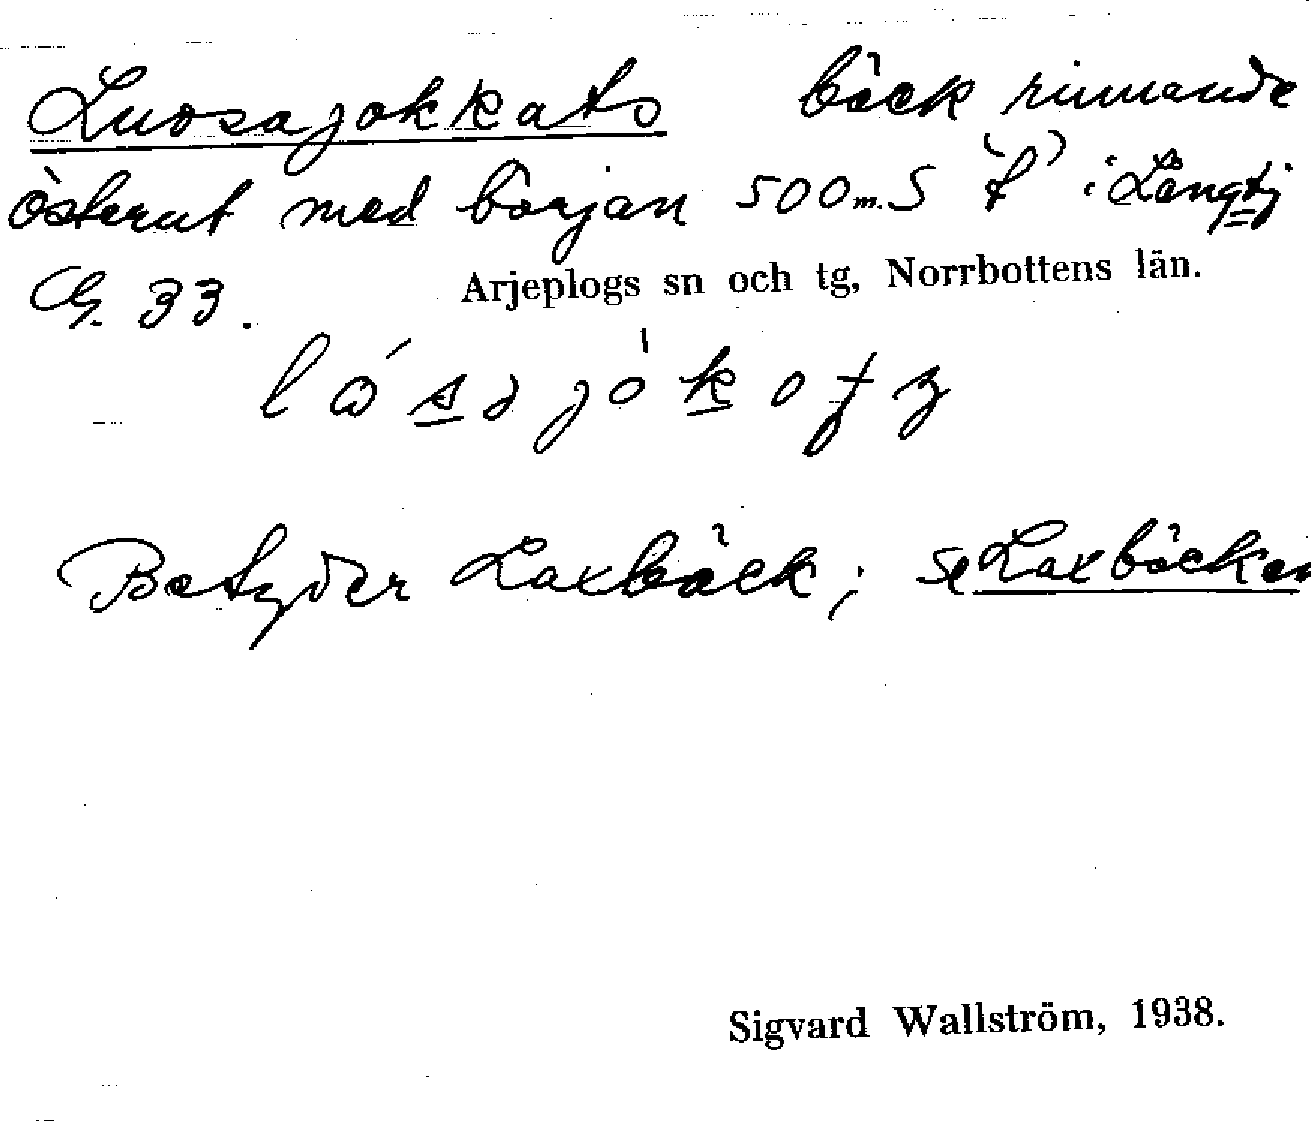 Luosajokkats bäck rinnande
österut med början 500 m. S "t" i Långtj
G. 33.
Arjeplogs sn och tg, Norrbottens län.
Betyder Laxbäck; se Laxbäcken
Sigvard Wallström, 1938.